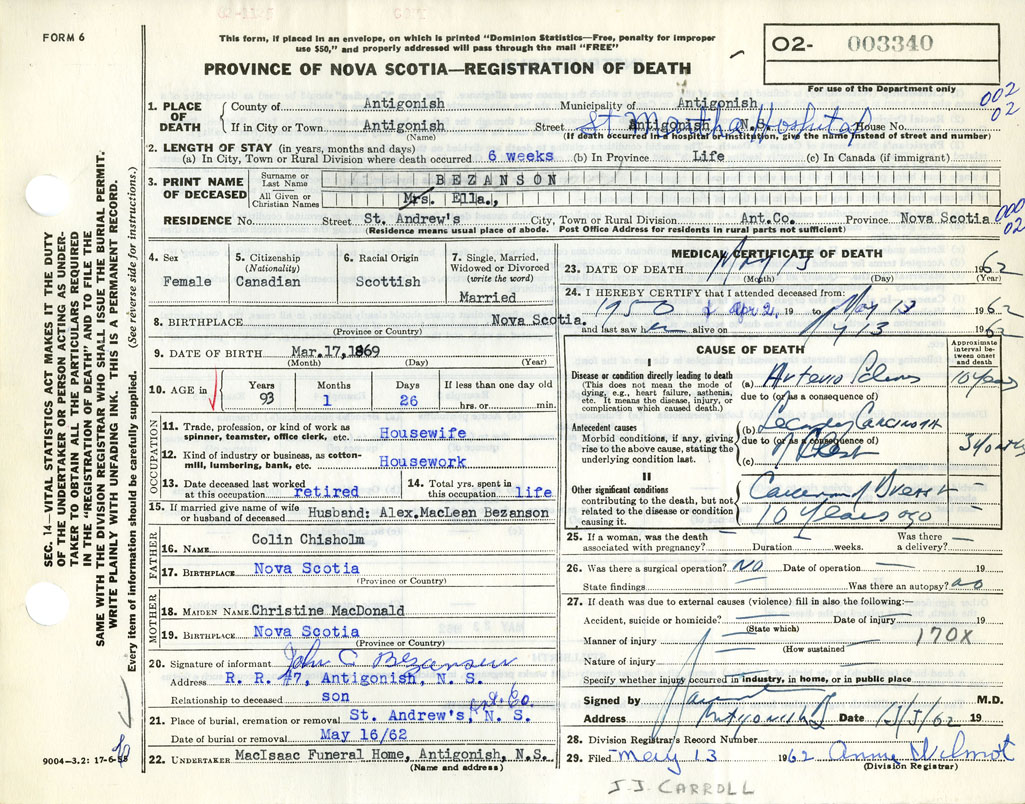 FORM 6
This form, if placed in an envelope, on which is printed "Dominion Statistics—Free, penalty for improper
use $50," and properly addressed will pass through the mail "FREE"
PROVINCE OF NOVA SCOTIA—REGISTRATION OF DEATH
O2- 003340
For use of the Department only
002
02
SEC. 14—VITAL STATISTICS ACT MAKES IT THE DUTY
OF THE UNDERTAKER OR PERSON ACTING AS UNDER-
TAKER TO OBTAIN ALL THE PARTICULARS REQUIRED
IN THE "REGISTRATION OF DEATH" AND TO FILE THE
SAME WITH THE DIVISION REGISTRAR WHO SHALL ISSUE THE BURIAL PERMIT.
WRITE PLAINLY WITH UNFADING INK. THIS IS A PERMANENT RECORD.
Every item of information should be carefully supplied. (See reverse side for instructions.)
1. PLACE OF DEATH
County of Antigonish Municipality of Antigonish
If in City or Town Antigonish Street Antigonish N.S. St Martha Hospital House No.
(Name) (If death occurred in a hospital or institution, give the name instead of street and number)
2. LENGTH OF STAY (in years, months and days)
(a) In City, Town or Rural Division where death occurred 6 weeks (b) In Province Life (c) In Canada (if immigrant)
3. PRINT NAME OF DECEASED
Surname or Last Name BEZANSON
All Given or Christian Names Mrs. Ella.,
RESIDENCE No. Street St. Andrew's City, Town or Rural Division Ant.Co. Province Nova Scotia
000
02
(Residence means usual place of abode. Post Office Address for residents in rural parts not sufficient)
4. Sex
Female
5. Citizenship (Nationality)
Canadian
6. Racial Origin
Scottish
7. Single, Married, Widowed or Divorced (write the word)
Married
8. BIRTHPLACE Nova Scotia.
(Province or Country)
9. DATE OF BIRTH Mar.17,1869
(Month) (Day) (Year)
10. AGE in
Years Months Days If less than one day old
93 1 26 hrs. or min.
OCCUPATION
11. Trade, profession, or kind of work as spinner, teamster, office clerk, etc. Housewife
12. Kind of industry or business, as cotton-mill, lumbering, bank, etc. Housework
13. Date deceased last worked at this occupation retired
14. Total yrs. spent in this occupation life
15. If married give name of wife or husband of deceased Husband: Alex.MacLean Bezanson
FATHER
16. NAME Colin Chisholm
17. BIRTHPLACE Nova Scotia
(Province or Country)
MOTHER
18. MAIDEN NAME Christine MacDonald
19. BIRTHPLACE Nova Scotia
(Province or Country)
20. Signature of informant John C Bezanson
Address R. R. #7, Antigonish, N. S.
Relationship to deceased son
21. Place of burial, cremation or removal St. Andrew's, Ant. Co. N. S.
Date of burial or removal May 16/62
22. UNDERTAKER MacIsaac Funeral Home, Antigonish, N.S.
(Name and address)
9004—3.2: 17-6-58
MEDICAL CERTIFICATE OF DEATH
23. DATE OF DEATH May 13 1962
(Month) (Day) (Year)
24. I HEREBY CERTIFY that I attended deceased from:
1950 & Apr 2, 19 to May 13 1962
and last saw her alive on 13 1962
CAUSE OF DEATH
Approximate interval between onset and death
I
Disease or condition directly leading to death
(This does not mean the mode of
dying, e.g., heart failure, asthenia,
etc. It means the disease, injury, or
complication which caused death.)
(a) Arterio Scleros 10 years
due to (or as a consequence of)
Antecedent causes
Morbid conditions, if any, giving
rise to the above cause, stating the
underlying condition last.
(b) Carcinoma
due to (or as a consequence of)
(c)
II
Other significant conditions
contributing to the death, but not
related to the disease or condition
causing it.
Breast
10 years ago
25. If a woman, was the death associated with pregnancy? — Duration — weeks. Was there a delivery? —
26. Was there a surgical operation? No Date of operation — 19
State findings — Was there an autopsy? no
27. If death was due to external causes (violence) fill in also the following:—
Accident, suicide or homicide? — Date of injury — 19
(State which)
Manner of injury — 170X
(How sustained)
Nature of injury
Specify whether injury occurred in industry, in home, or in public place
Signed by M.D.
Address Antigonish Date 13/5/62 19
28. Division Registrar's Record Number
29. Filed May 13 1962 Anna Wilmot
(Division Registrar)
J.J. CARROLL